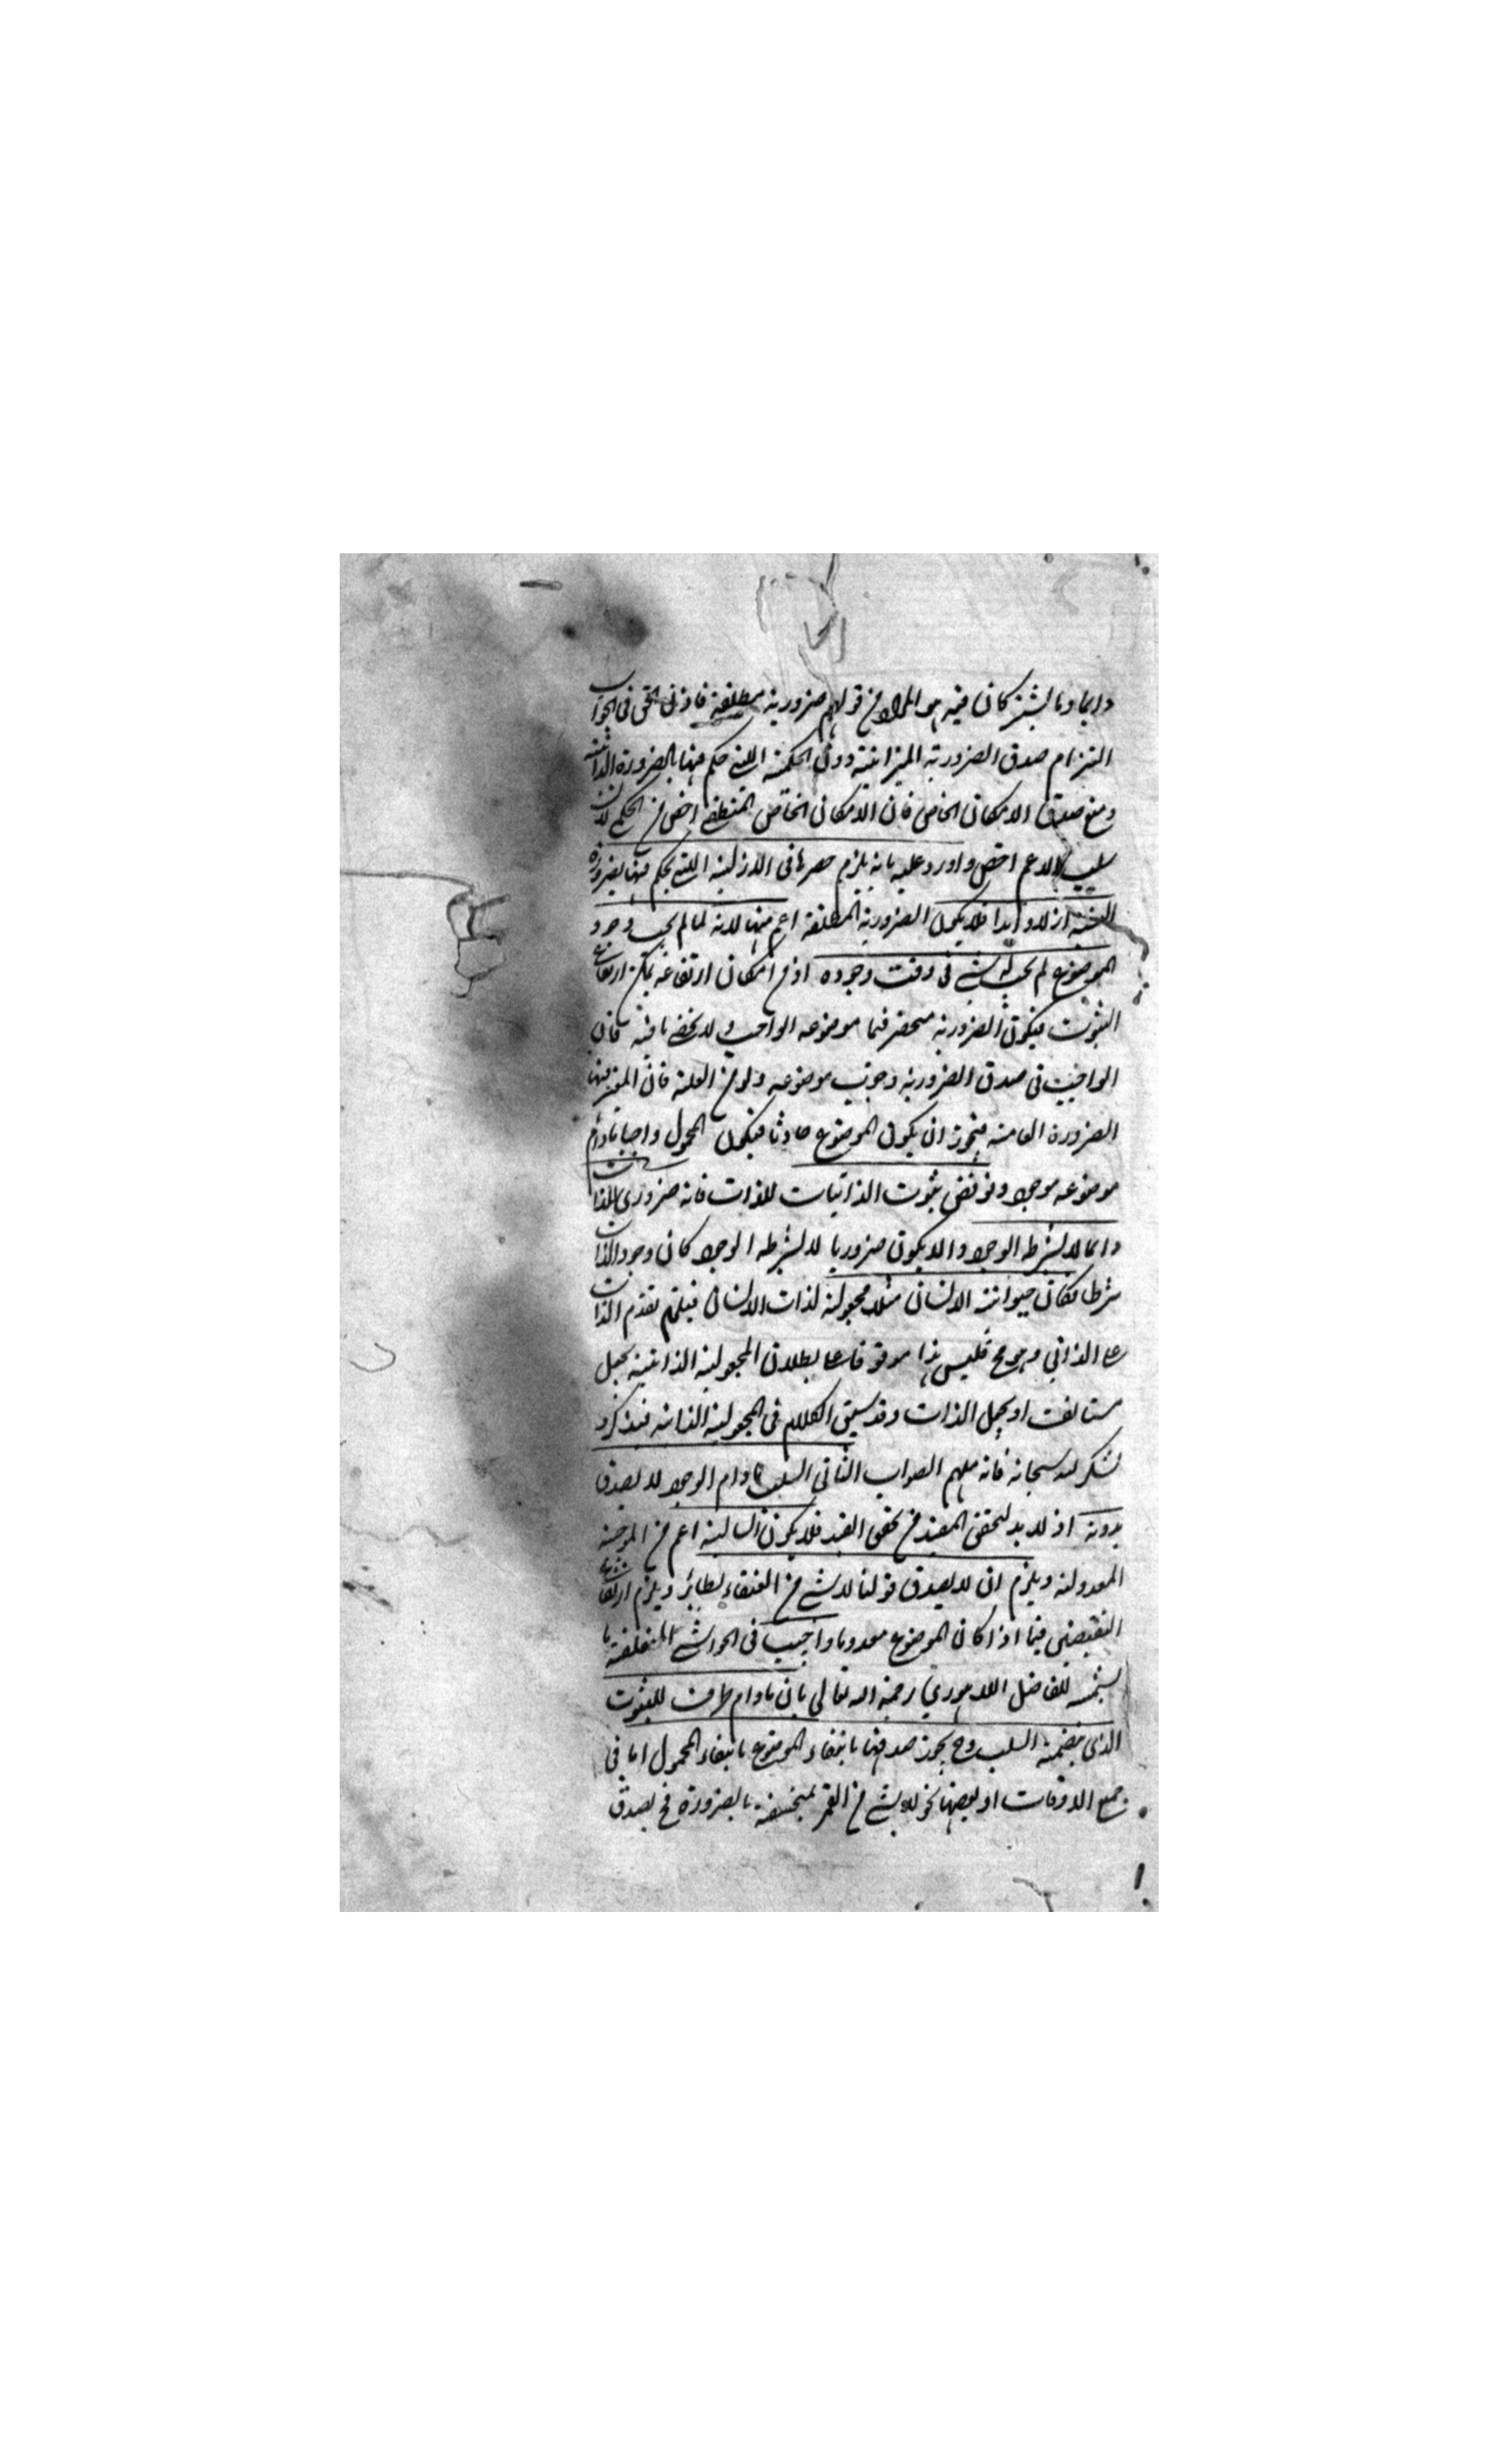 دايما وبالشرط كان فيه هو المراد من قولهم ضرورية مطلقة فاذن الحق في الجواب
التزام صدق الضرورية الميزانية دون الحكمية اللتي حكم فيها بالضرورة الذاتية
ومنع صدق الامكان الخاص فان الامكان الخاص المنطقي اخص من الحكمي لان
سلب الاعم اخص واورد عليه بانه يلزم حصرها في الازلية اللتي يحكم فيها بضرورة
النسبة ازلا وابدا فلا يكون الضرورية المطلقة اعم منها لانه لما لم يجب وجود
الموضوع لم يجب له شئ في وقت وجوده اذ من امكان ارتفاعه يمكن ارتفاع
الثبوت فيكون الضرورية منحصرة فيما موضوعه الواجب ولا يخفى ما فيه فان
الواجب في صدق الضرورية وجوب موضوعه ولو من العلة فان المعتبر فيها
الضرورة العامة فيجوز ان يكون الموضوع حادثا فيكون المحمول واجبا مادام
موضوعه موجودا ونوقض بثبوت الذاتيات للذات فانه ضروري للذات
دائما لا بشرط الوجود والا يكون ضروريا لا بشرط الوجود كان وجود الذات
شرطا فكان حيوانية الانسان مثلا مجعولة لذات الانسان فيلزم تقدم الذات
على الذاتي وهو مح فليس هذا موقوفا على بطلان المجعولية الذاتية بجعل
مستانف او بجعل الذات وقد سبق الكلام في المجعولية الذاتية فتذكر و
تشكر لله سبحانه فانه ملهم الصواب الثاني السلب مادام الوجود لا يصدق
بدونه اذ لا بد لتحقق المقيد من تحقق القيد فلا يكون السالبة اعم من الموجبة
المعدولة ويلزم ان لا يصدق قولنا لا شئ من العنقاء بطائر ويلزم ارتفاع
النقيضين فيما اذا كان الموضوع معدوما واجيب في الحواشي المتعلقة با
لشمسية للفاضل اللاهوري رحمة الله تعالى بان مادام ظرف للثبوت
الذي يتضمنه السلب وح يجوز صدقها بانتفاء الموضوع بانتفاء المحمول اما في
جميع الاوقات او بعضها نحو لا شئ من القمر بمنخسف بالضرورة فح يصدق